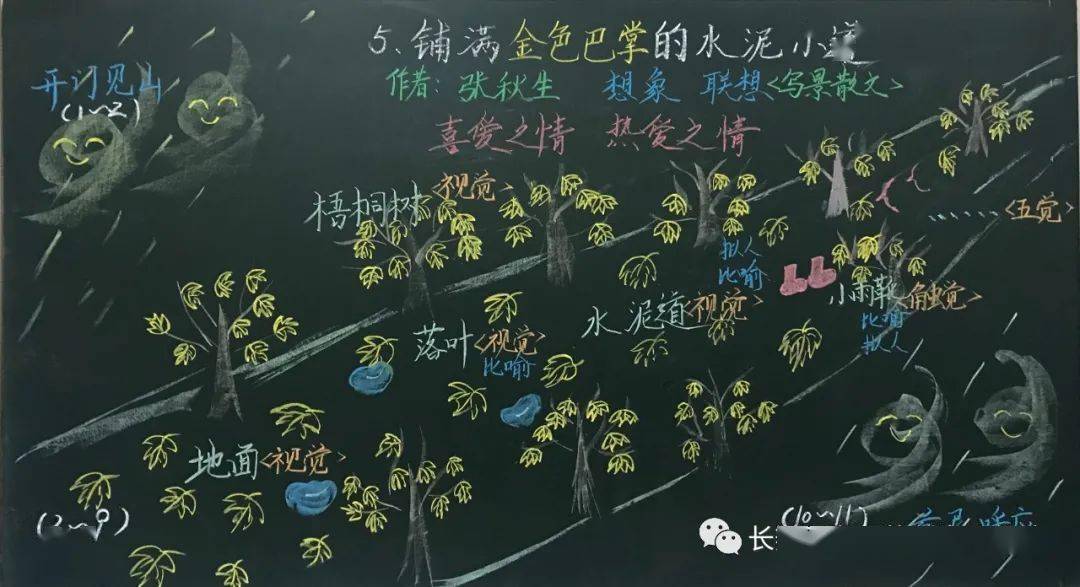 5、铺满金色巴掌的水泥小道
开门见山
(1~2)
作者：张秋生 想象 联想<写景散文>
喜爱之情 热爱之情
梧桐树<视觉>
......<五觉>
拟人
比喻
小雨靴<触觉>
比喻
拟人
水泥道<视觉>
落叶<视觉>
比喻
地面<视觉>
(2~9)
(10~11)
长